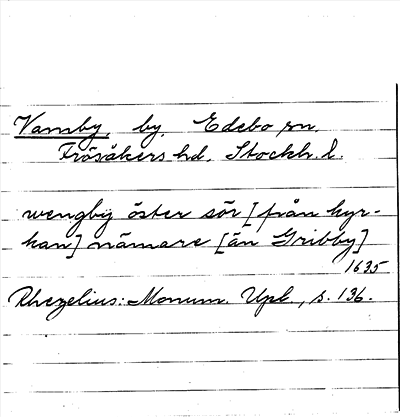 Vamby, by, Edebo sn.
Frösåkers hd. Stockh. l.
wengbÿ öster sör [från kyr-
kan] nämare [än Gribby]
1635
Rhezelius: Monum. Upl., s. 136.